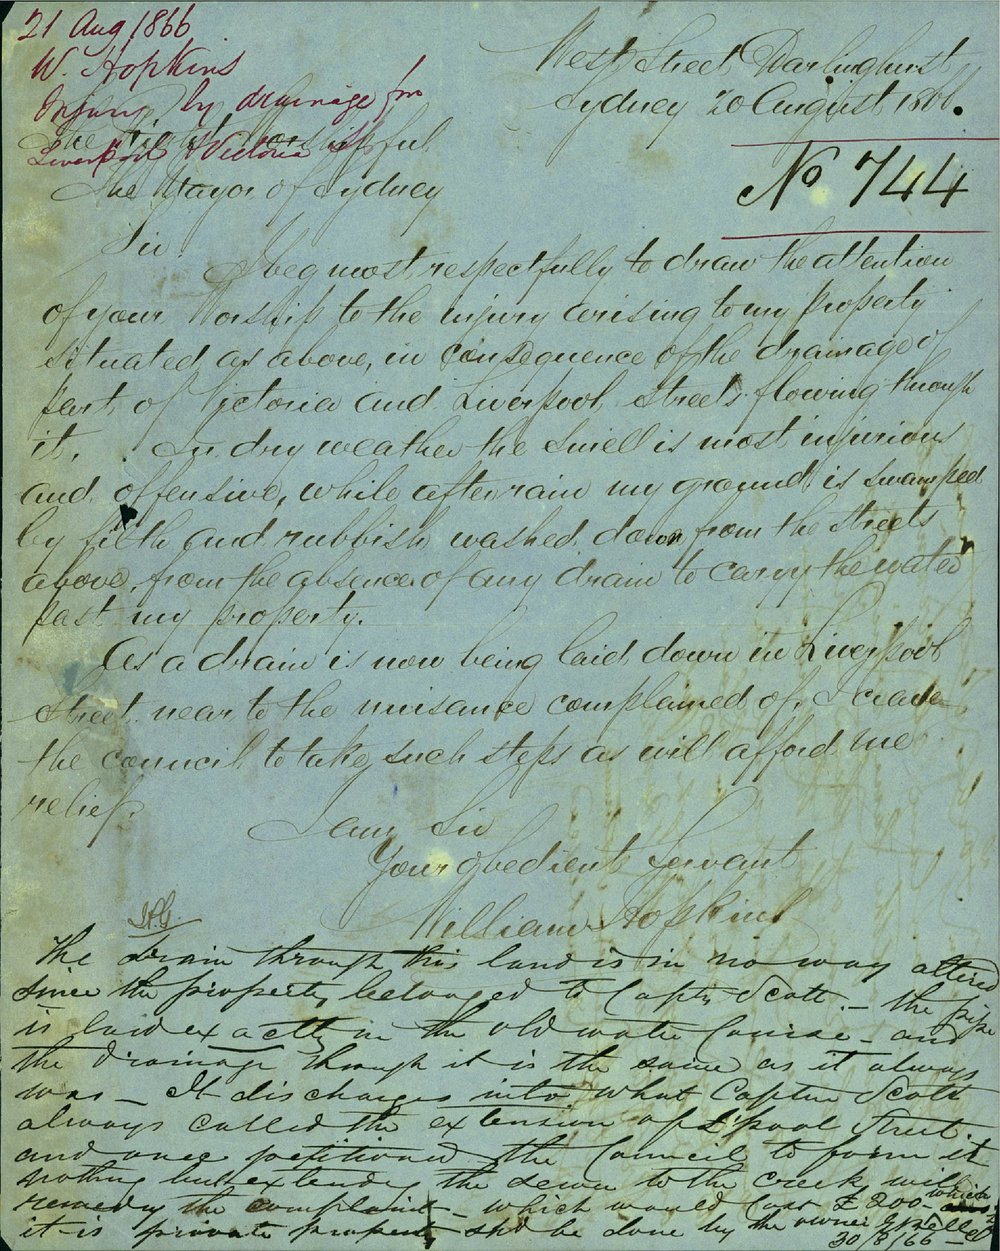 21 Aug 1866
W. Hopkins
Injury by drainage from
Liverpool & Victoria Sts
West Street Darlinghurst
Sydney 20 August 1866.
No 744
The Right Worshipful
The Mayor of Sydney
Sir
I beg most respectfully to draw the attention
of your Worship to the injury arising to my property
situated as above, in consequence of the drainage of
part of Victoria and Liverpool Streets flowing through
it. In dry weather the smell is most injurious
and offensive, while after rain my ground is swamped
by filth and rubbish washed down from the streets
above, from the absence of any drain to carry the water
past my property.
As a drain is now being laid down in Liverpool
Street near to the nuisance complained of, I crave
the council to take such steps as will afford me
relief.
I am Sir
Your obedient Servant
William Hopkins
The drain through this land is in no way altered
since the property belonged to Captn Scott - the pipe
is laid exactly in the old water Course - and
the drainage through it is the same as it always
was - It discharges into what Captn Scott
always called the extension of L'pool Street
and once petitioned the Council to form it
nothing but extending the sewer to the creek will
remedy the complaint - which would cost £200 - which
it is private property shd be done by the owner
30/8/66